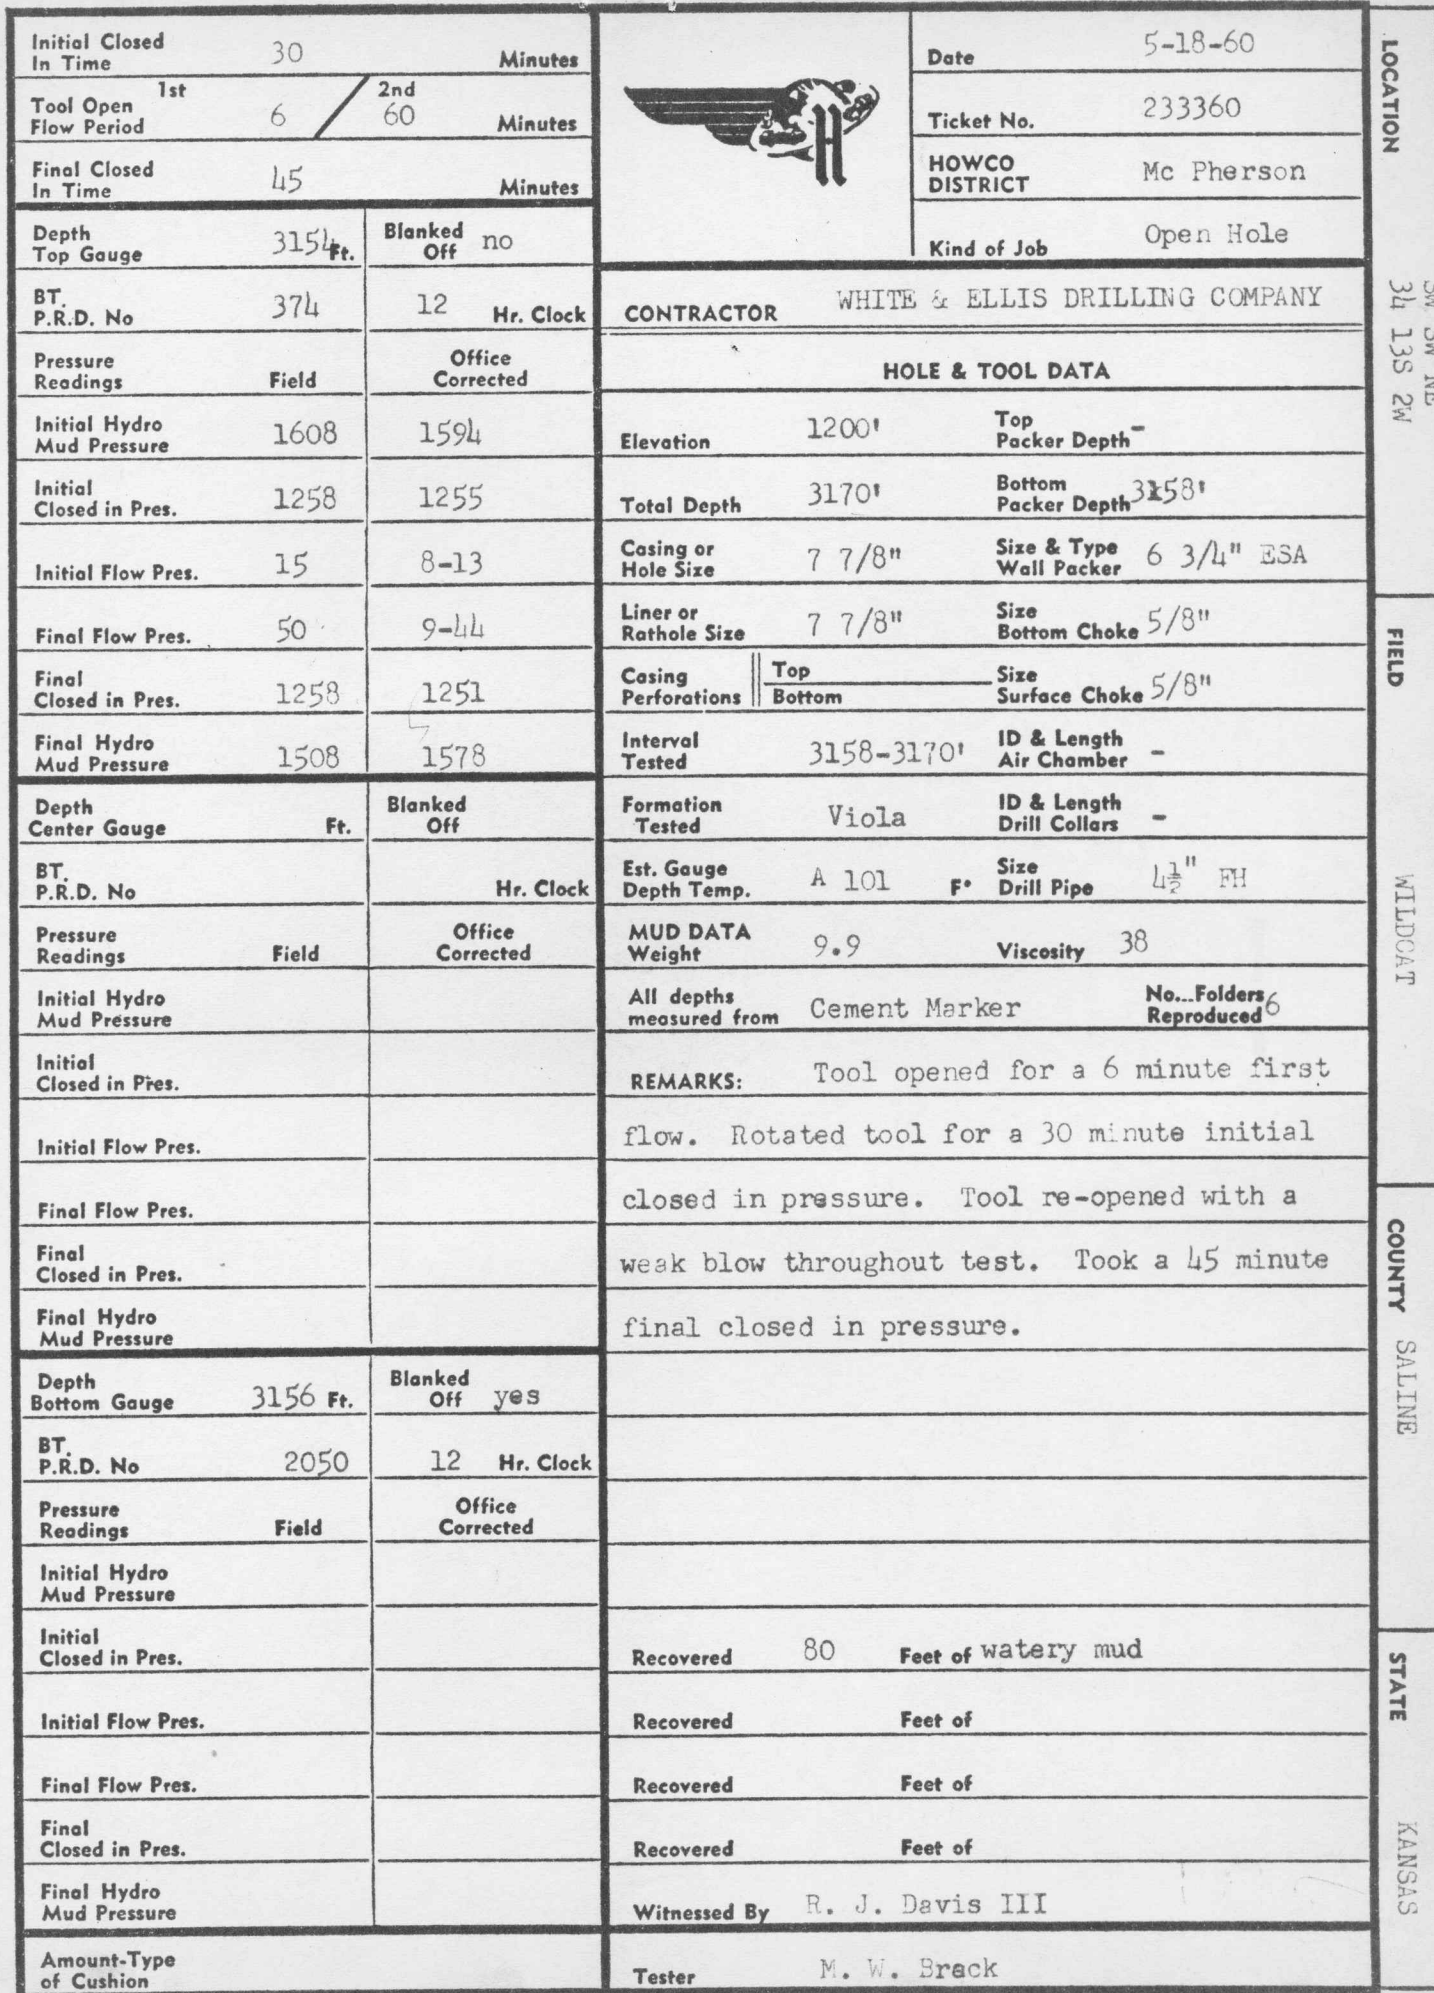 Initial Closed
In Time 30 Minutes
1st 2nd
Tool Open
Flow Period 6 / 60 Minutes
Final Closed
In Time 45 Minutes
Depth
Top Gauge 3154 Ft. Blanked Off no
BT.
P.R.D. No 374 12 Hr. Clock
Pressure
Readings Field Office Corrected
Initial Hydro
Mud Pressure 1608 1594
Initial
Closed in Pres. 1258 1255
Initial Flow Pres. 15 8-13
Final Flow Pres. 50 9-44
Final
Closed in Pres. 1258 1251
Final Hydro
Mud Pressure 1508 1578
Depth
Center Gauge Ft. Blanked Off
BT.
P.R.D. No Hr. Clock
Pressure
Readings Field Office Corrected
Initial Hydro
Mud Pressure
Initial
Closed in Pres.
Initial Flow Pres.
Final Flow Pres.
Final
Closed in Pres.
Final Hydro
Mud Pressure
Depth
Bottom Gauge 3156 Ft. Blanked Off yes
BT.
P.R.D. No 2050 12 Hr. Clock
Pressure
Readings Field Office Corrected
Initial Hydro
Mud Pressure
Initial
Closed in Pres.
Initial Flow Pres.
Final Flow Pres.
Final
Closed in Pres.
Final Hydro
Mud Pressure
Amount-Type
of Cushion
H
Date 5-18-60
Ticket No. 233360
HOWCO
DISTRICT Mc Pherson
Kind of Job Open Hole
CONTRACTOR WHITE & ELLIS DRILLING COMPANY
HOLE & TOOL DATA
Elevation 1200' Top Packer Depth -
Total Depth 3170' Bottom Packer Depth 3158'
Casing or
Hole Size 7 7/8" Size & Type Wall Packer 6 3/4" ESA
Liner or
Rathole Size 7 7/8" Size Bottom Choke 5/8"
Casing
Perforations Top Bottom Size Surface Choke 5/8"
Interval
Tested 3158-3170' ID & Length Air Chamber -
Formation
Tested Viola ID & Length Drill Collars -
Est. Gauge
Depth Temp. A 101 F° Size Drill Pipe 4½" FH
MUD DATA
Weight 9.9 Viscosity 38
All depths
measured from Cement Marker No...Folders Reproduced 6
REMARKS: Tool opened for a 6 minute first
flow. Rotated tool for a 30 minute initial
closed in pressure. Tool re-opened with a
weak blow throughout test. Took a 45 minute
final closed in pressure.
Recovered 80 Feet of watery mud
Recovered Feet of
Recovered Feet of
Recovered Feet of
Witnessed By R. J. Davis III
Tester M. W. Brack
LOCATION
SW SW NE
34 13S 2W
FIELD WILDCAT
COUNTY SALINE
STATE KANSAS